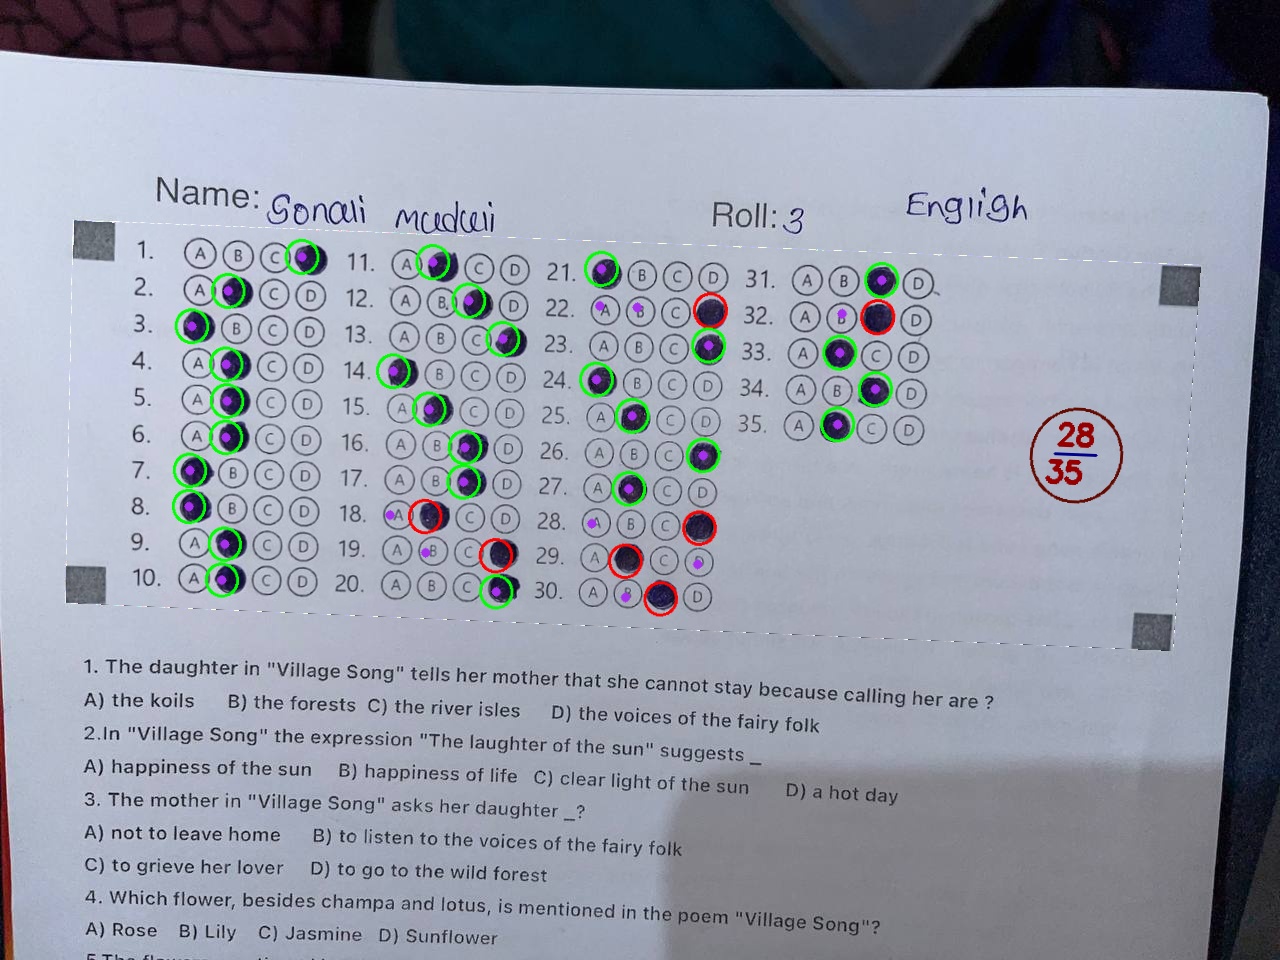 Name: Sonali Muduli Roll: 3 Engligh
1. A B C 11. A C D 21. B C D 31. A B D
2. A C D 12. A B D 22. A B C 32. A B D
3. B C D 13. A B C 23. A B C 33. A C D
4. A C D 14. B C D 24. B C D 34. A B D
5. A C D 15. A C D 25. A C D 35. A C D
6. A C D 16. A B D 26. A B C
7. B C D 17. A B D 27. A C D
8. B C D 18. A C D 28. A B C
9. A C D 19. A B C 29. A C
10. A C D 20. A B C 30. A B D
28
35
1. The daughter in "Village Song" tells her mother that she cannot stay because calling her are ?
A) the koils B) the forests C) the river isles D) the voices of the fairy folk
2.In "Village Song" the expression "The laughter of the sun" suggests _
A) happiness of the sun B) happiness of life C) clear light of the sun D) a hot day
3. The mother in "Village Song" asks her daughter _?
A) not to leave home B) to listen to the voices of the fairy folk
C) to grieve her lover D) to go to the wild forest
4. Which flower, besides champa and lotus, is mentioned in the poem "Village Song"?
A) Rose B) Lily C) Jasmine D) Sunflower